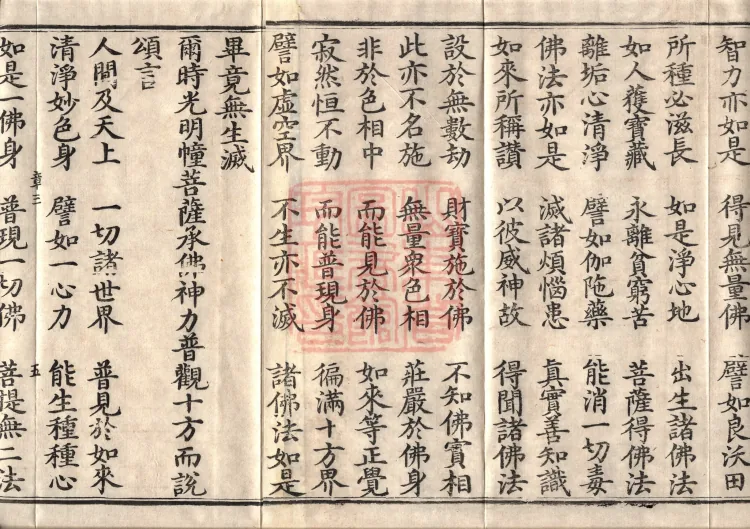 智力亦如是　得見無量佛　譬如良沃田
所種必滋長　如是淨心地　出生諸佛法
如人獲寶藏　永離貧窮苦　菩薩得佛法
離垢心清淨　譬如伽陁藥　能消一切毒
佛法亦如是　滅諸煩惱患　真實善知識
如來所稱讃　以彼威神故　得聞諸佛法
設於無數劫　財寶施於佛　不知佛實相
此亦不名施　無量衆色相　莊嚴於佛身
非於色相中　而能見於佛　如來等正覺
寂然恒不動　而能普現身　徧滿十方界
譬如虛空界　不生亦不滅　諸佛法如是
畢竟無生滅
爾時光明幢菩薩承佛神力普觀十方而說
頌言
人間及天上　一切諸世界　普見於如來
清淨妙色身　譬如一心力　能生種種心
章三　五
如是一佛身　普現一切佛　菩提無二法